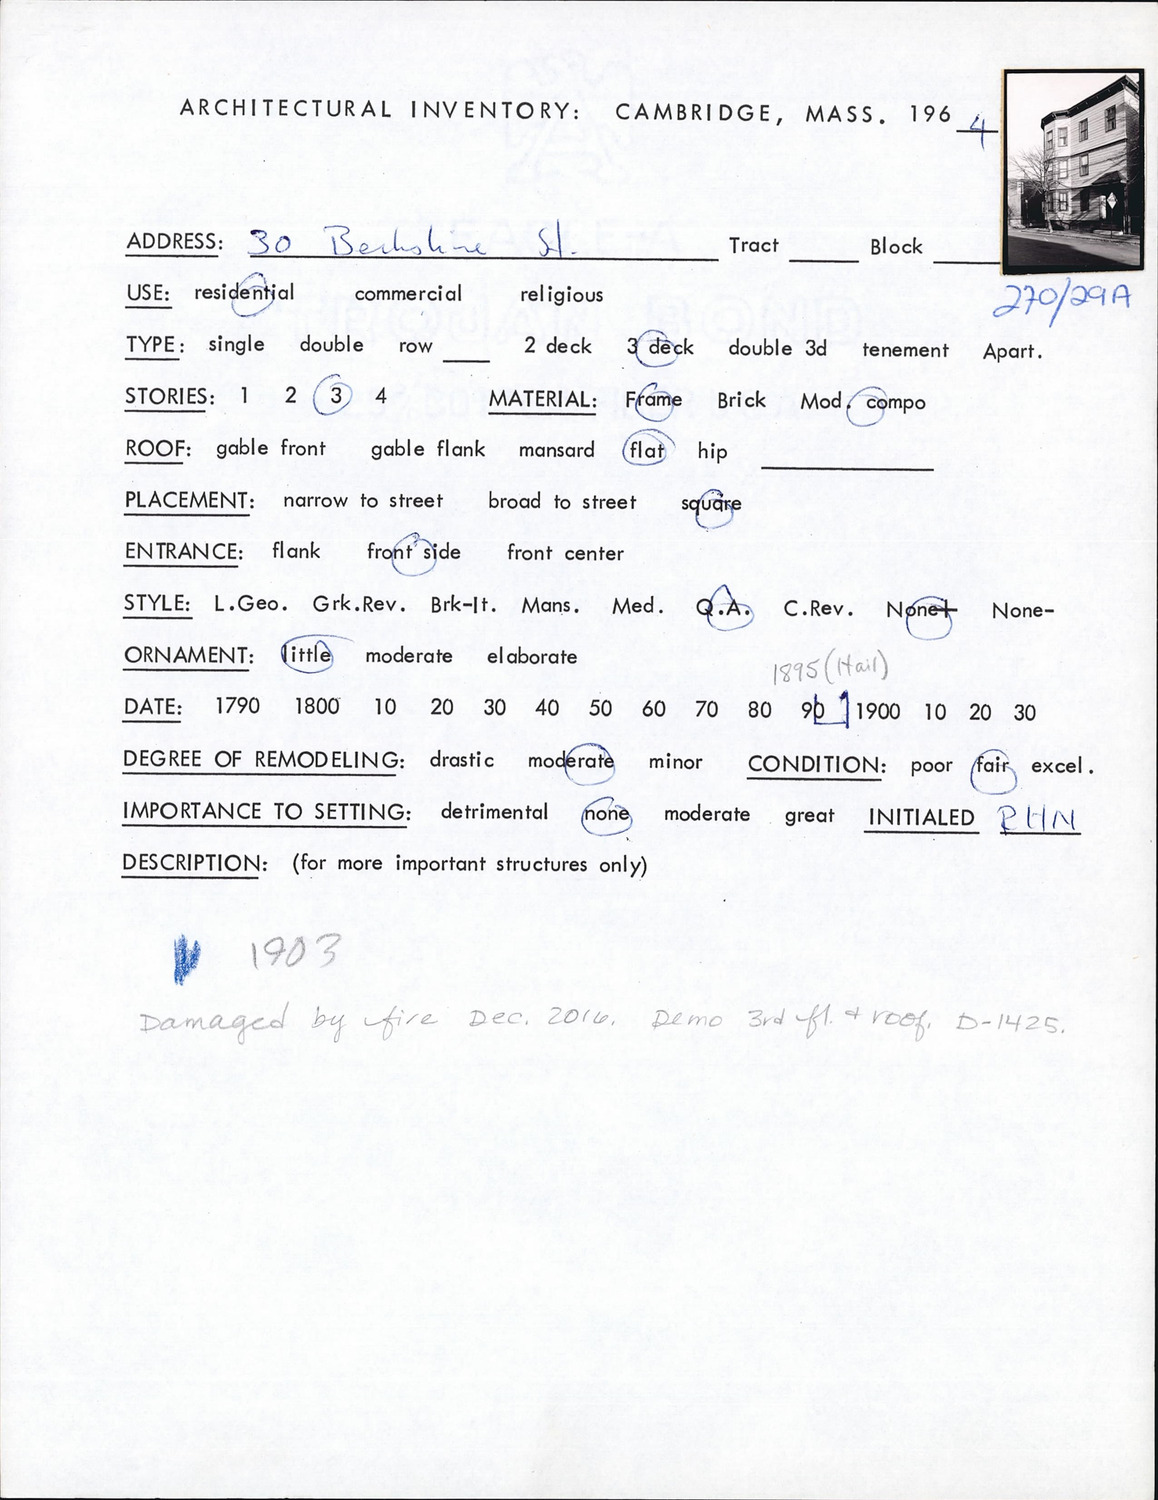 ARCHITECTURAL INVENTORY: CAMBRIDGE, MASS. 1964
ADDRESS: 30 Berkshire St. Tract ____ Block ____
270/29A
USE: residential commercial religious
TYPE: single double row ____ 2 deck 3 deck double 3d tenement Apart.
STORIES: 1 2 3 4 MATERIAL: Frame Brick Mod. compo
ROOF: gable front gable flank mansard flat hip ____
PLACEMENT: narrow to street broad to street square
ENTRANCE: flank front side front center
STYLE: L.Geo. Grk.Rev. Brk-It. Mans. Med. Q.A. C.Rev. None+ None-
ORNAMENT: little moderate elaborate
1895 (Hail)
DATE: 1790 1800 10 20 30 40 50 60 70 80 90 1900 10 20 30
DEGREE OF REMODELING: drastic moderate minor CONDITION: poor fair excel.
IMPORTANCE TO SETTING: detrimental none moderate great INITIALED RHN
DESCRIPTION: (for more important structures only)
1903
Damaged by fire Dec. 2016. Demo 3rd fl. + roof. D-1425.